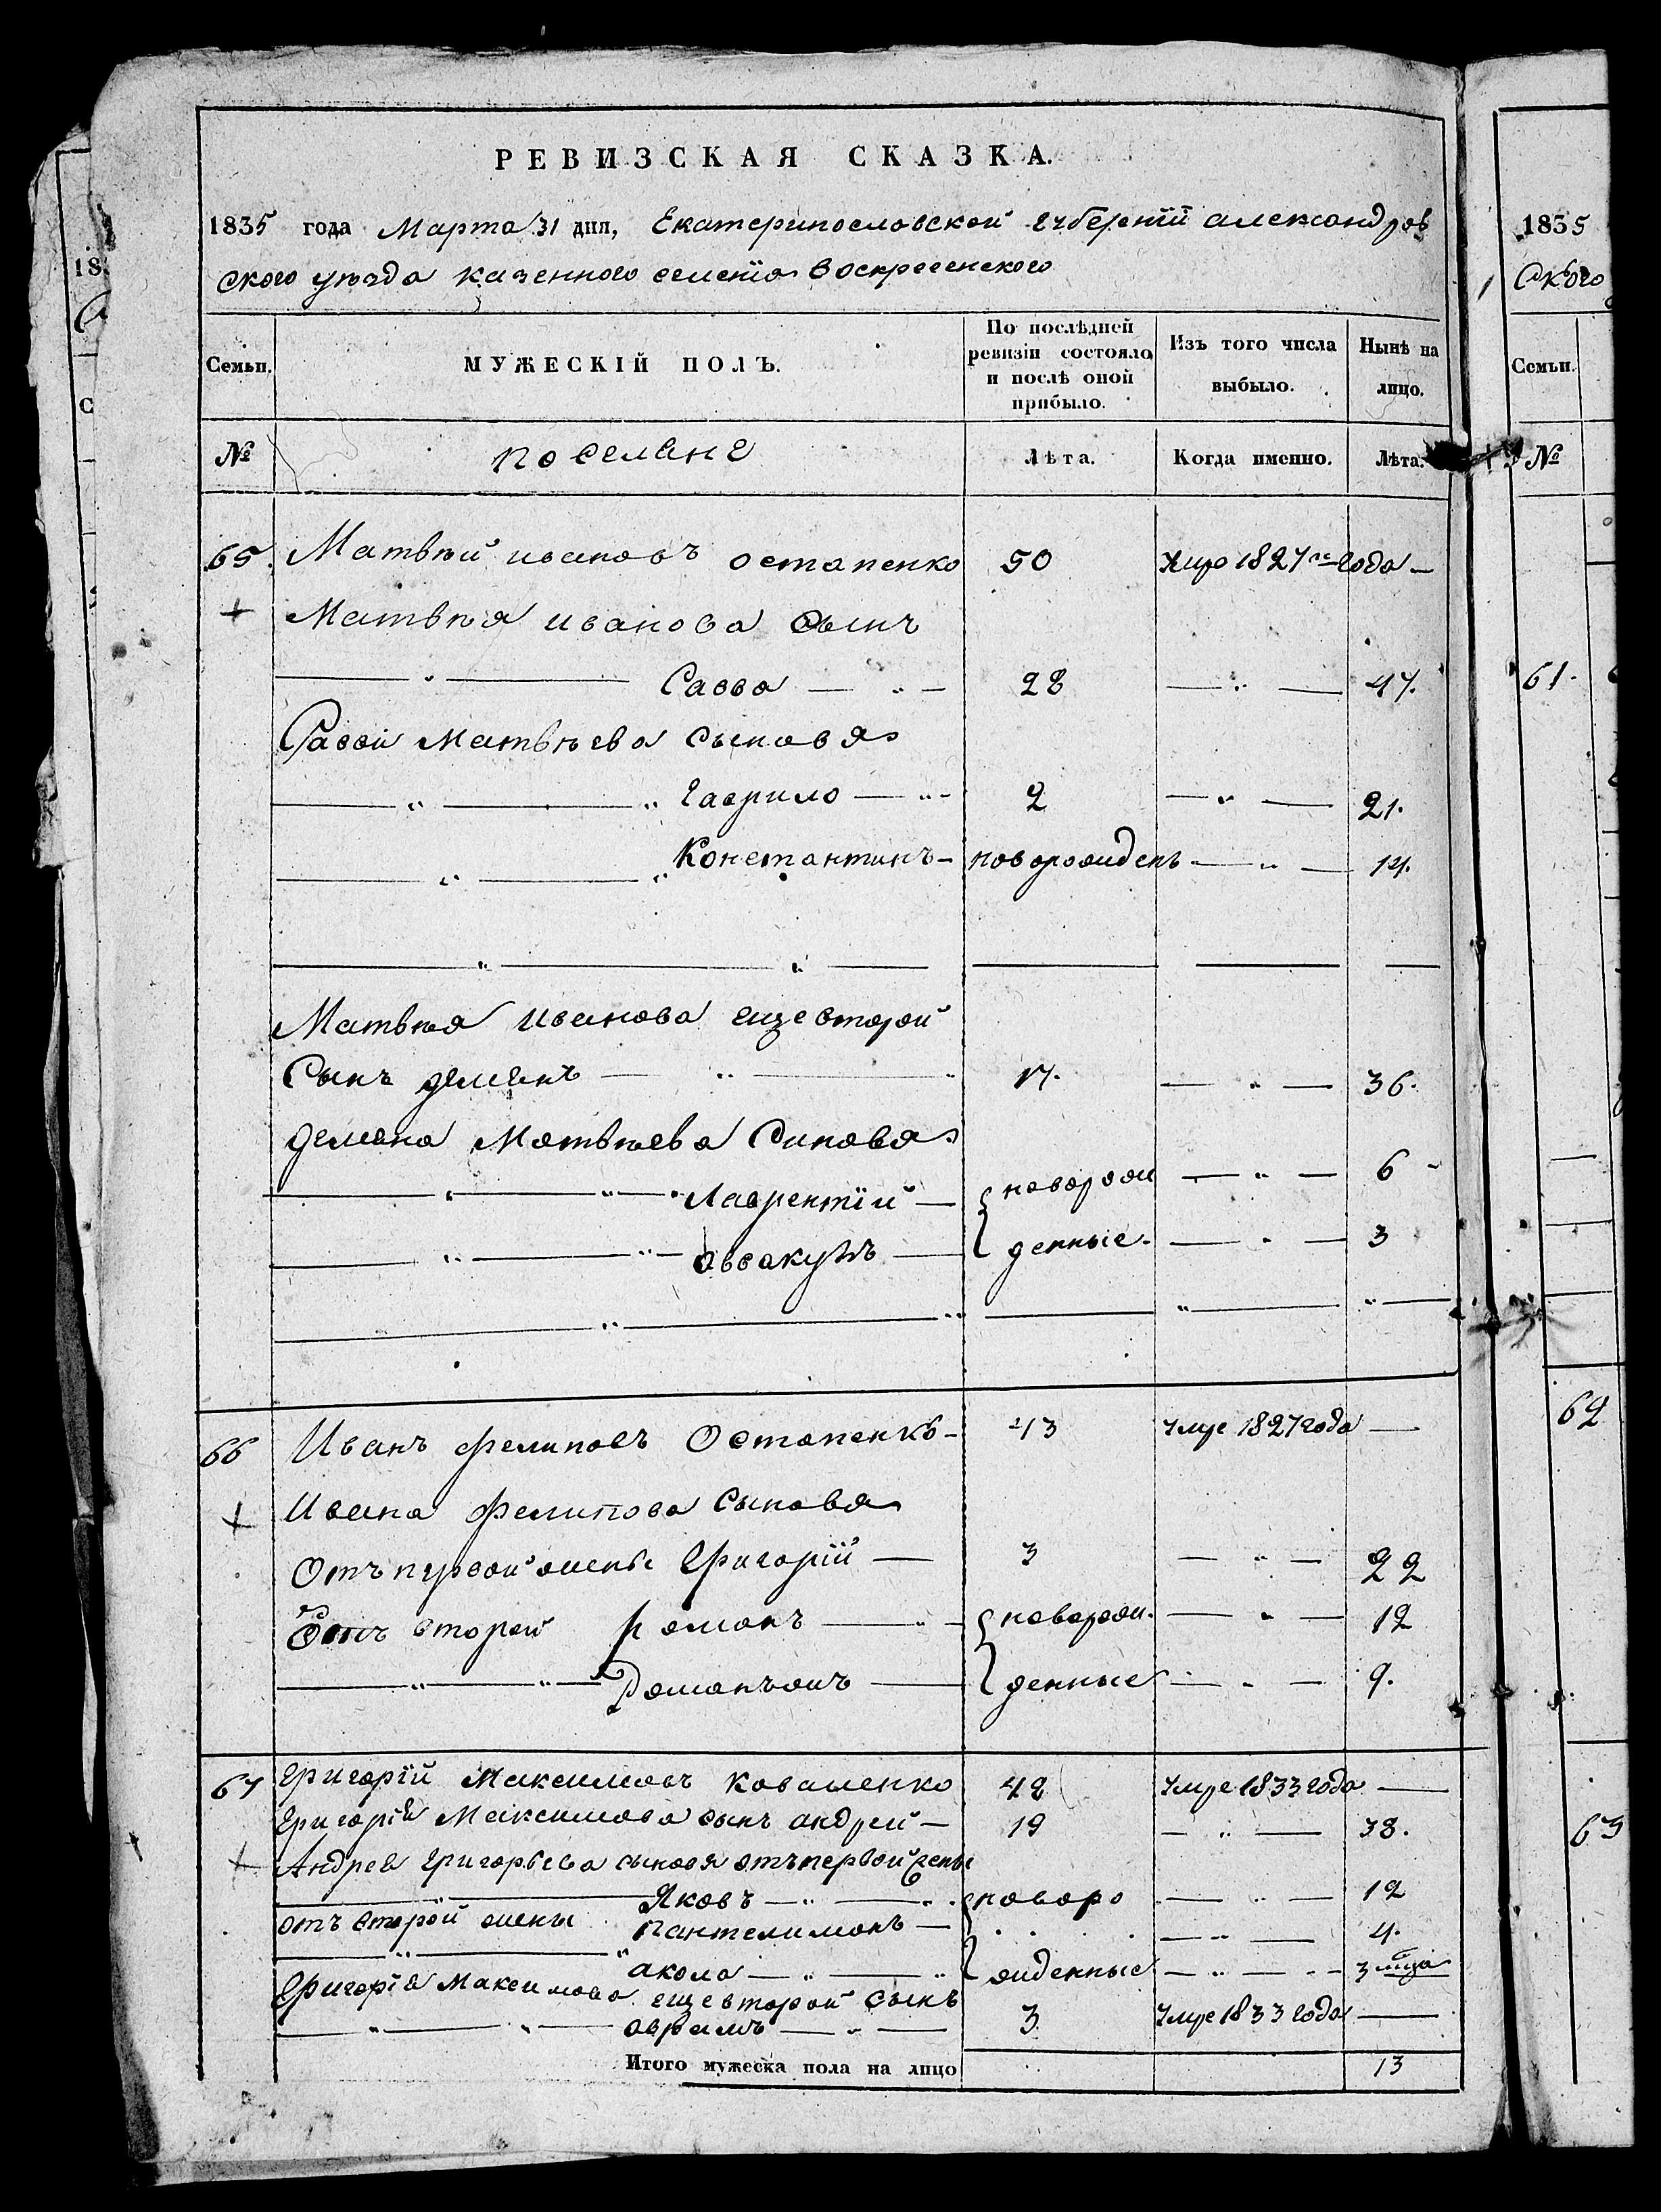 РЕВИЗСКАЯ СКАЗКА.
1835 года Марта 31 дня, Екатеринославской губернїи александров
ского уезда казенного селенїя воскресенского
Семьи. МУЖЕСКІЙ ПОЛЪ. По послѣдней ревизіи состояло и послѣ оной прибыло. Изъ того числа выбыло. Нынѣ на лицо.
№ поселяне Лѣта. Когда именно. Лѣта.
65. Матвѣй ивановъ остапенко 50 умре 1827го года —
Матвѣя иванова сынъ
Савва 28 47.
Саввы Матвѣева сыновя
гаврило 2 21.
Константинъ новорожденъ 14.
Матвѣя иванова еще второй
Сынъ демянъ 17. 36.
демяна Матвѣева Синовя
Лаврентїй новорож 6
аввакумъ денные. 3
66 Иванъ фелиповъ Остапенкѣ 43 умре 1827 года —
Ивана фелипова сыновя
Отъ первой жены Григорїй 3 22
Отъ второй роман новорож. 12
денные 9.
67 Григорїй Максимовъ коваленко 42 умре 1833 года —
Григорїя Максимова сынъ андрей 19 38.
Андрея григорьева сыновя отъ первой жены
Яковъ новоро 12
отъ второй жены пантелимонъ 4.
акола жденные 3
Григорїя Максимова еще второй сынъ
аврамъ 3 умре 1833 года —
Итого мужеска пола на лицо 13
18
С
1835
Ского
Семьи.
№
61.
62
63